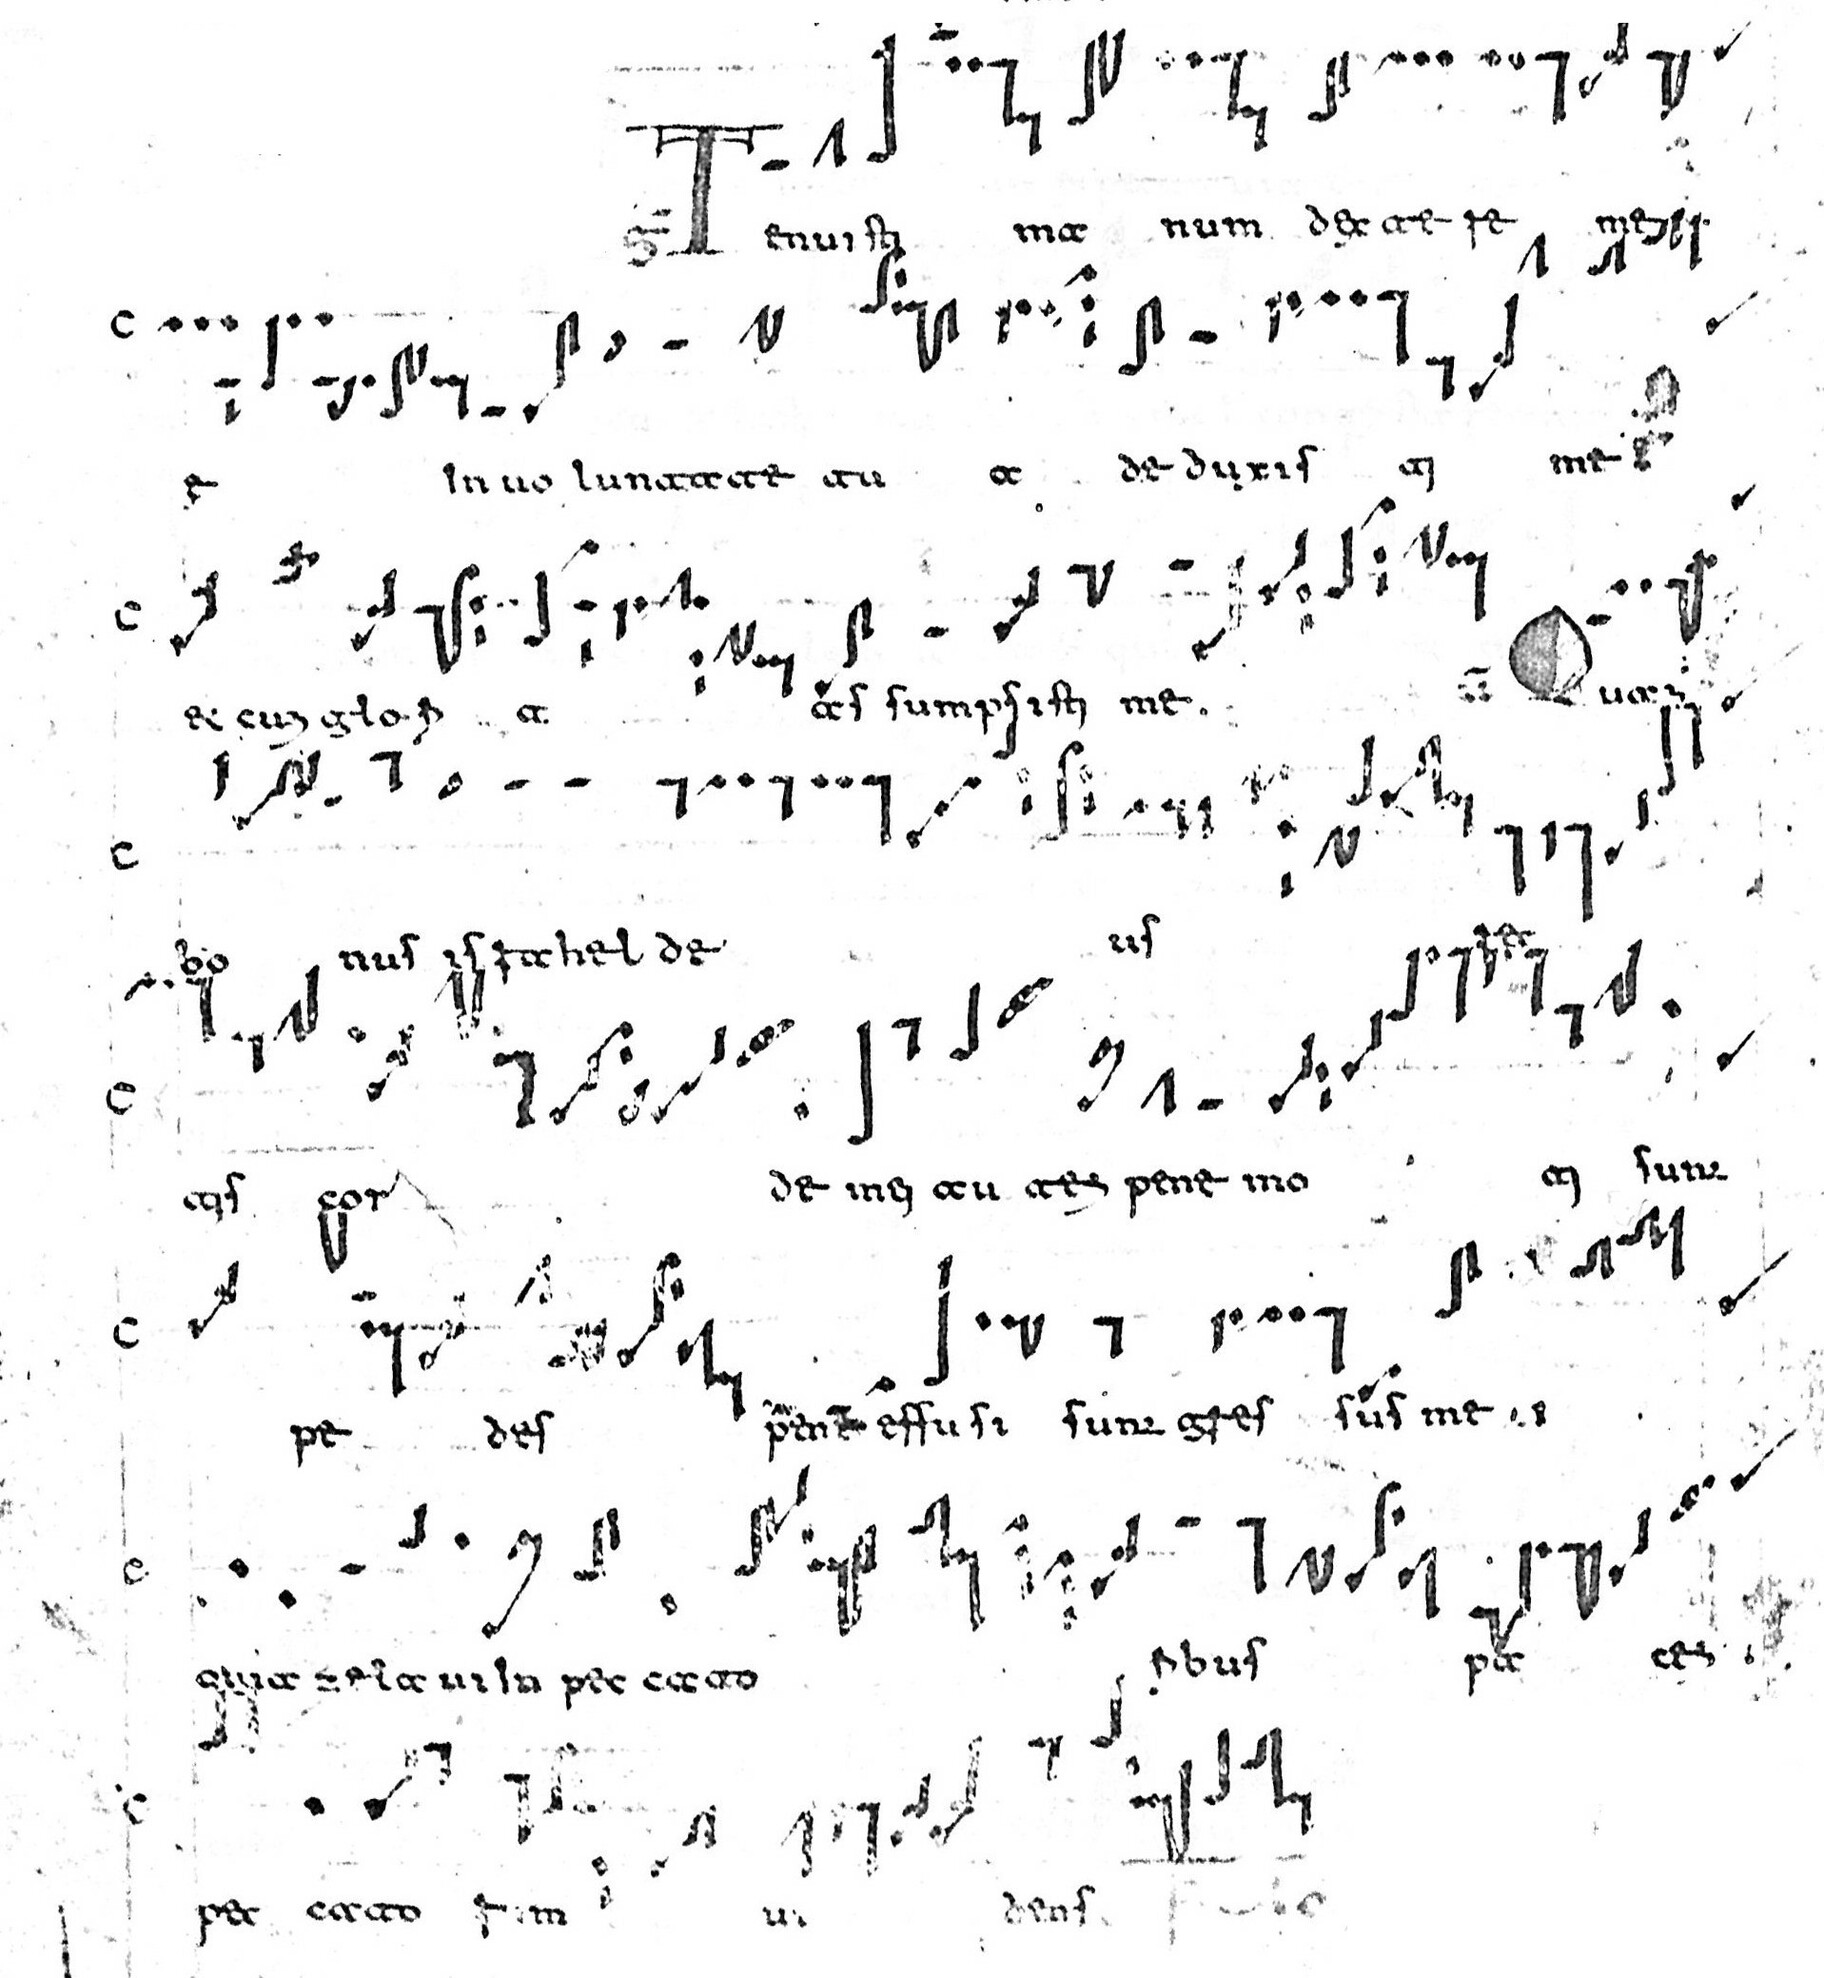 Tenuisti ma num dexte re me
e In uo luntate tu a de duxis ti me
et cum glori a as sumpsisti me. Quam
bo nus israhel de us rec
tis cor de mei au tem pene mo ti sunt
pe des pene effusi sunt gres sus me i
quia zelaui In pec cato ribus pa cem
pec cato rum ui dens